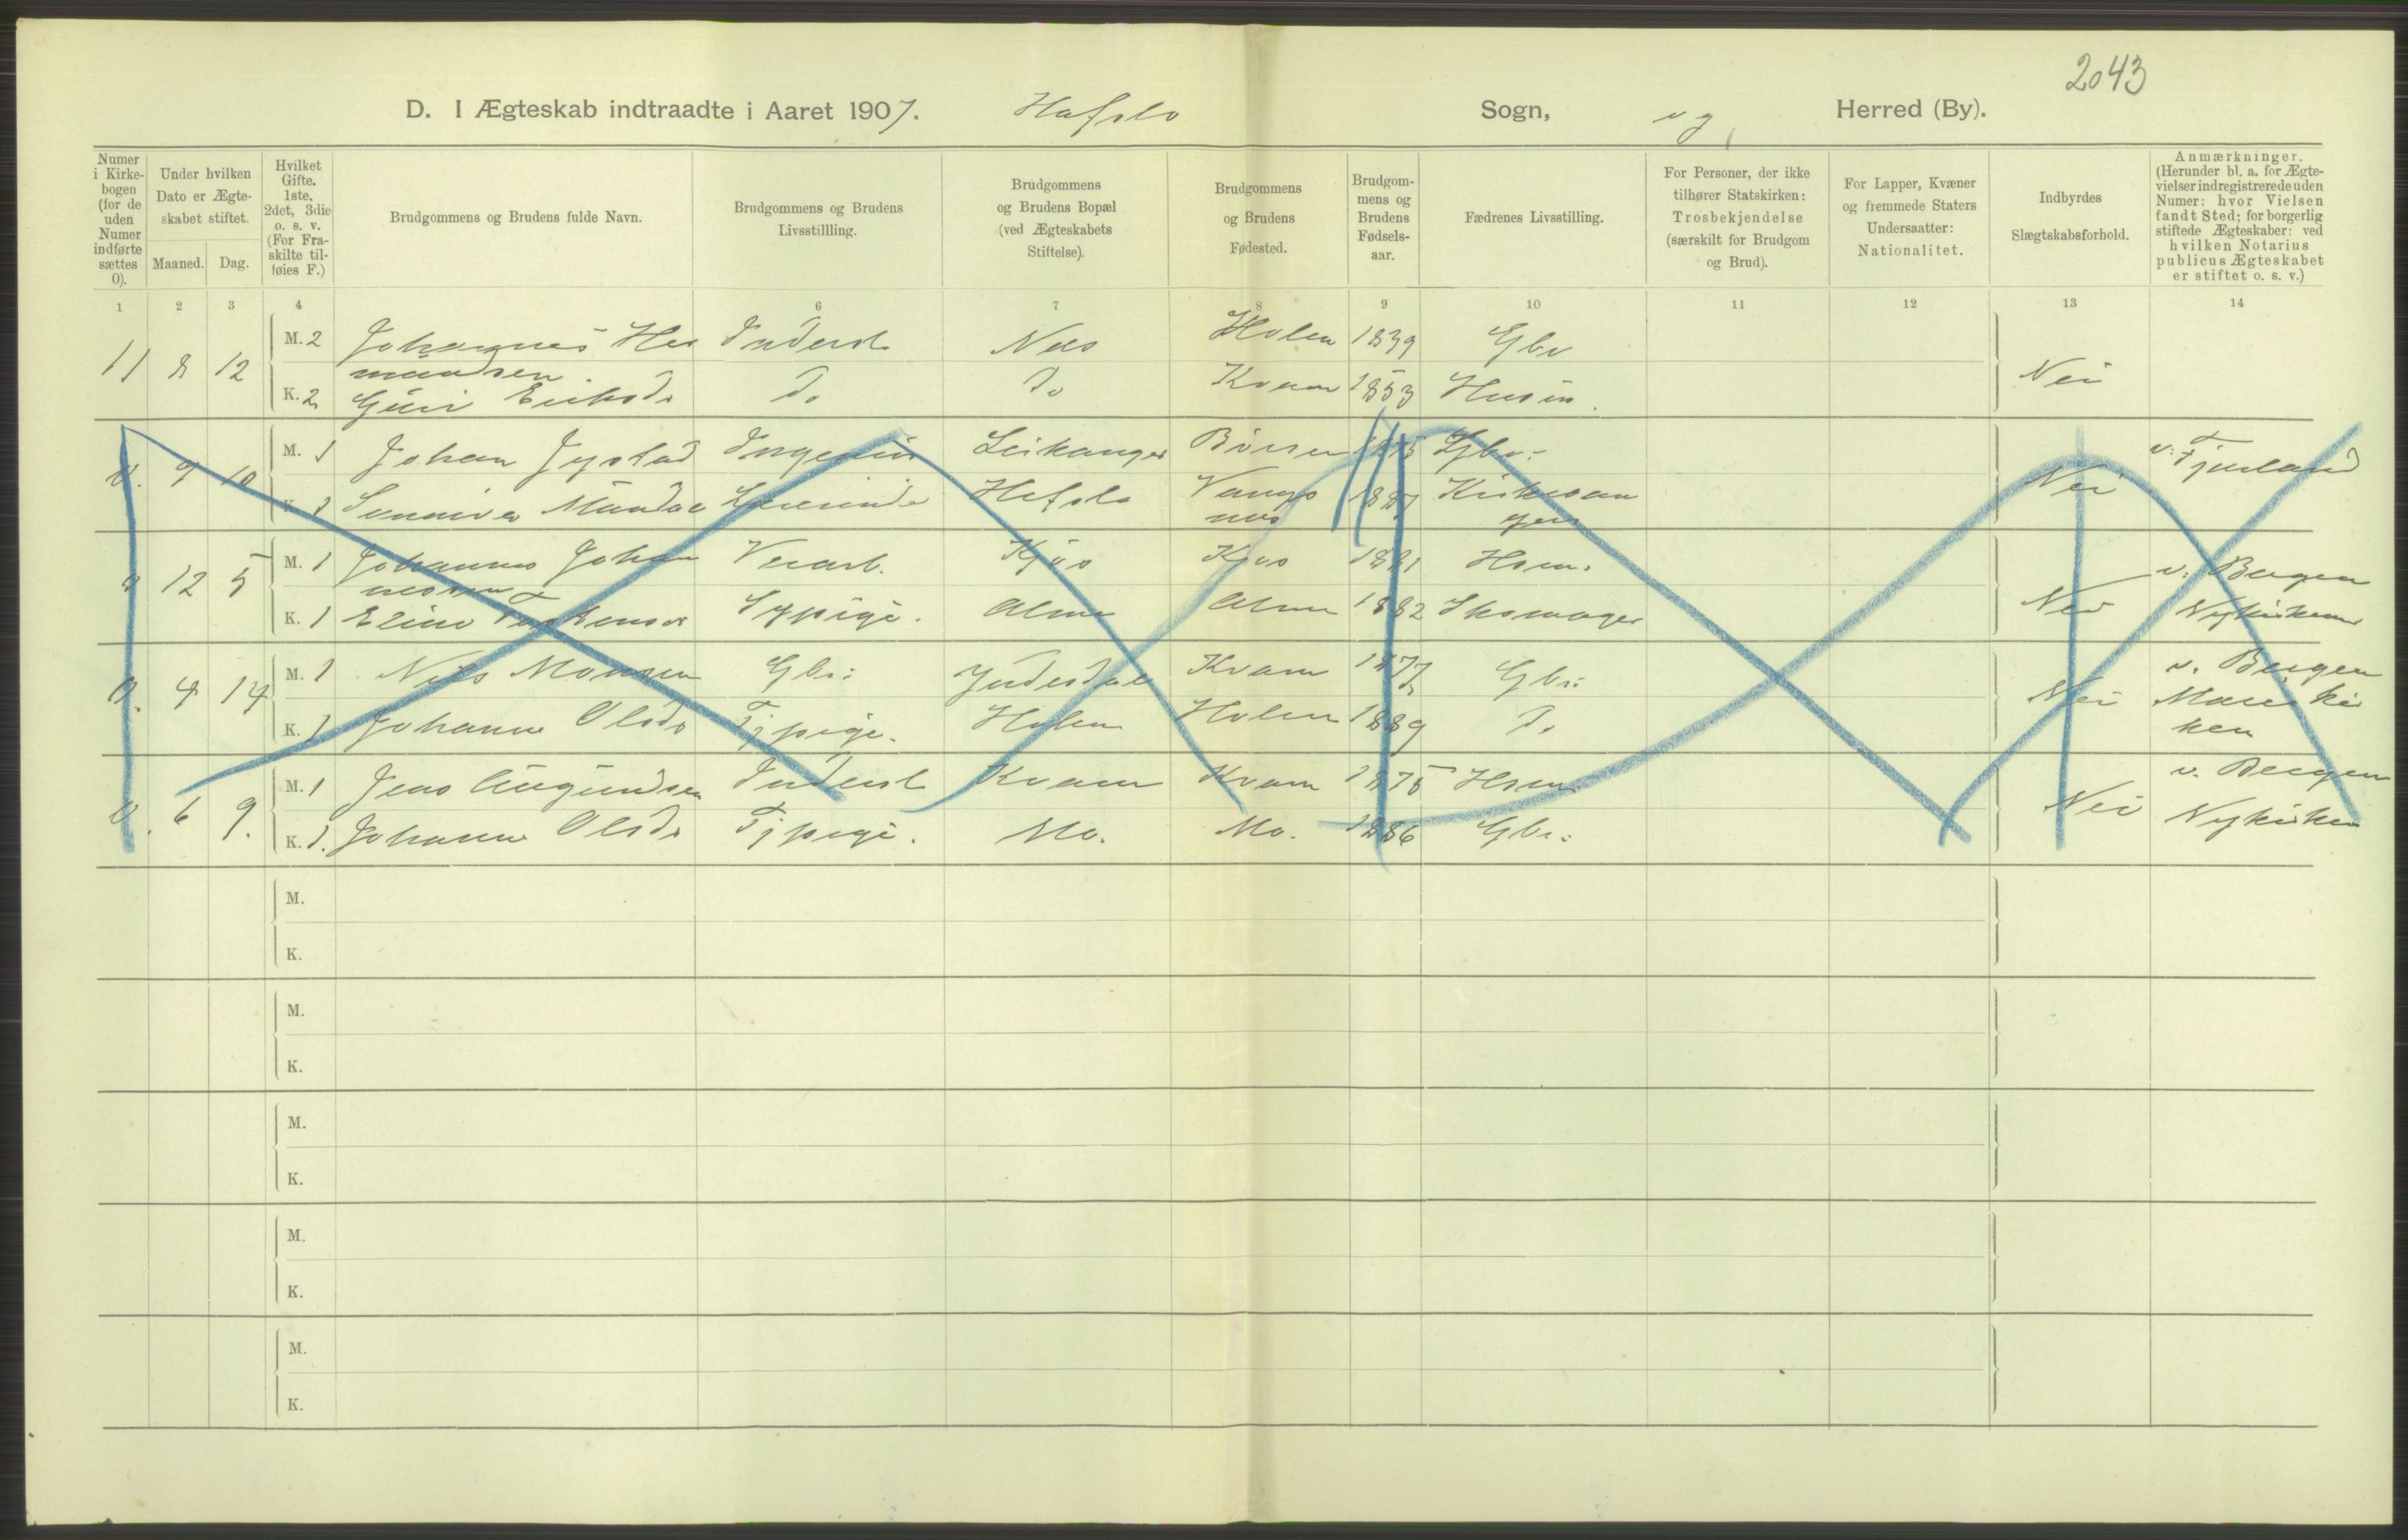 2043
D. I Ægteskab indtraadte i Aaret 1907. Hafslo Sogn, og Herred (By).
Numer i Kirkebogen (for de uden Numer indførte sættes 0).
Under hvilken Dato er Ægteskabet stiftet.
Maaned. Dag.
Hvilket Gifte. 1ste, 2det, 3die o. s. v. (For Fraskilte tilføies F.)
Brudgommens og Brudens fulde Navn.
Brudgommens og Brudens Livsstillling.
Brudgommens og Brudens Bopæl (ved Ægteskabets Stiftelse).
Brudgommens og Brudens Fødested.
Brudgommens og Brudens Fødselsaar.
Fædrenes Livsstilling.
For Personer, der ikke tilhører Statskirken: Trosbekjendelse (særskilt for Brudgom og Brud).
For Lapper, Kvæner og fremmede Staters Undersaatter: Nationalitet.
Indbyrdes Slægtskabsforhold.
Anmærkninger. (Herunder bl. a. for Ægtevielser indregistrerede uden Numer: hvor Vielsen fandt Sted; for borgerlig stiftede Ægteskaber: ved hvilken Notarius publicus Ægteskabet er stiftet o. s. v.)
1 2 3 4 6 7 8 9 10 11 12 13 14
11 8 12 M. 2 Johannes Her Inderst Nes Holen 1839 Gbr
mandsen
K. 2 Guri Eriksd. do do Kvam 1853 Husm. Nei
0. 9 10 M. 1 Johan Jystad Ingeniør Leikanger Börsen 1875 Gbr. v. Fjærland
K. 1 Sunniva Mundal Lærerinde Hafslo Vangs 1887 Kirkesan Nei
nes ger
0 12 5 M. 1 Johannes Johan Vearb. Kjøs Kjøs 1881 Hsm. v. Bergen
nessen
K. 1 Eline Sypige. Alme Alme 1882 Skomager Nei Nykirken
0. 4 14 M. 1 Nils Monsen Gbr: Kvam 1877 Gbr: v. Bergen
K. 1 Johanne Olsdr Tjpige. Holen Holen 1889 do Nei Marieki
ken
0. 6 9. M. 1 Jens Augundsen Inderst Kvam Kvam 1875 Hsm. v. Bergen
K. 1. Johanne Olsdr Tjpige. Mo. Mo. 1886 Gbr: Nei Nykirken
M.
K.
M.
K.
M.
K.
M.
K.
M.
K.